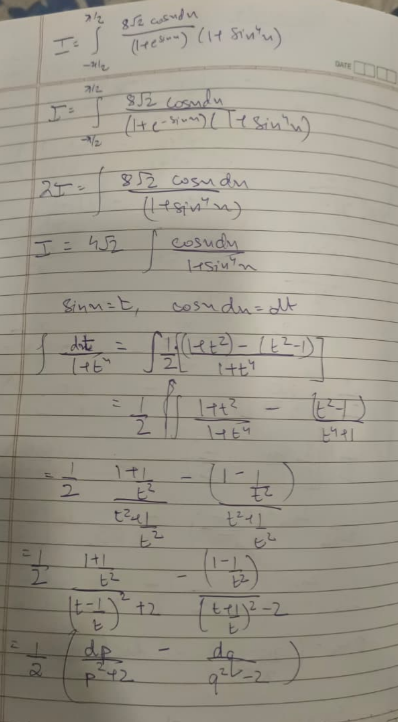 I = ∫_{-π/2}^{π/2} 8√2 cosx dx / (1+e^{sinx}) (1+ sin⁴x)
DATE
I = ∫_{-π/2}^{π/2} 8√2 cosx dx / (1+e^{-sinx}) (1+sin⁴x)
2I = ∫ 8√2 cosx dx / (1+sin⁴x)
I = 4√2 ∫ cosx dx / 1+sin⁴x
sinx = t, cosx dx = dt
∫ dt / 1+t⁴ = ∫ 1/2 [(1+t²) - (t²-1) / 1+t⁴]
= 1/2 ∫ 1+t² / 1+t⁴ - (t²-1) / t⁴+1
= 1/2 (1+1/t²) / (t²+1/t²) - (1-1/t²) / (t²+1/t²)
= 1/2 (1+1/t²) / ((t-1/t)²+2) - (1-1/t²) / ((t+1/t)²-2)
= 1/2 (dp / p²+2 - dq / q²-2)